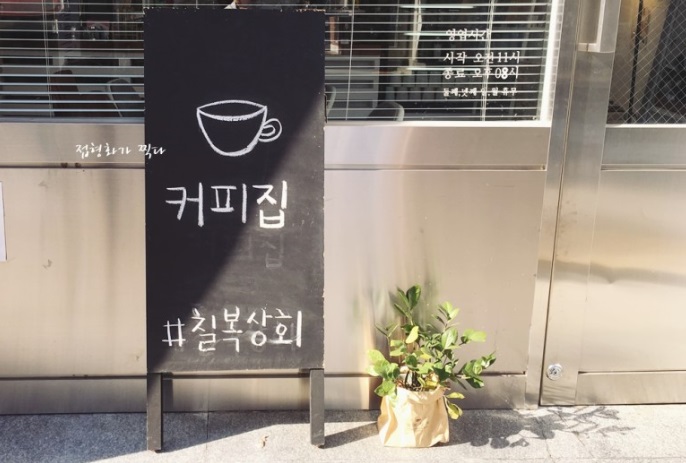 영업시간
시작 오전 11시
종료 오후 08시
둘째,넷째 일,월 휴무
접형화가 찍다
커피집
#칠복상회